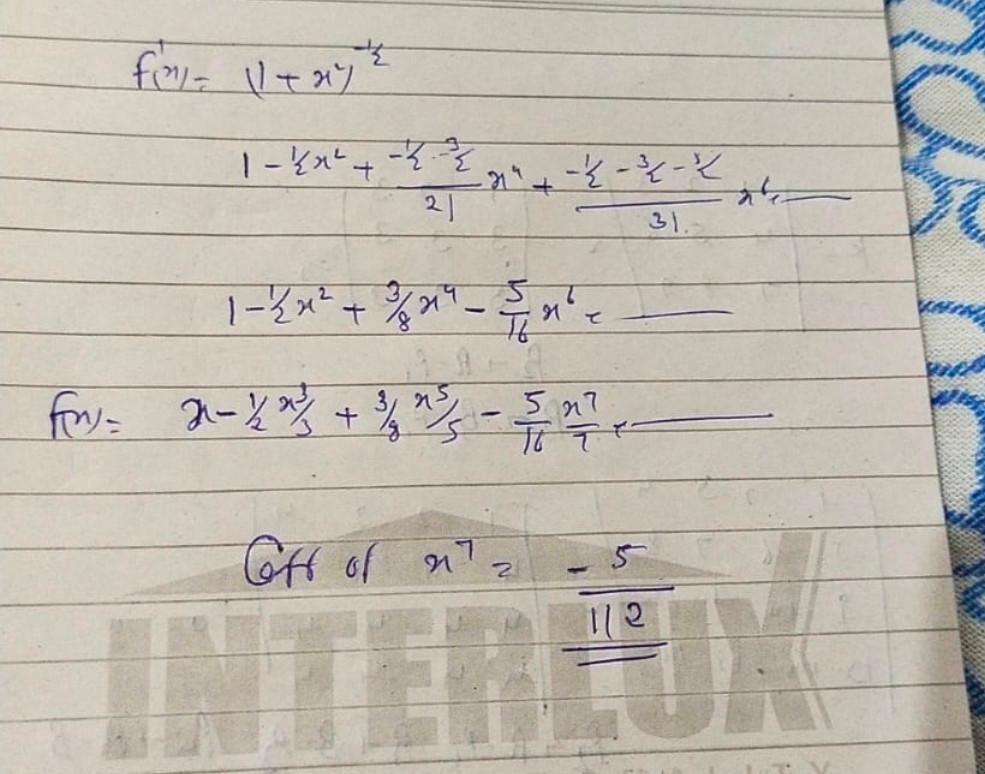 f'(x) = (1 + x²)^-½
1 - ½x² + (-½ · -³⁄₂)/2! x⁴ + (-½ -³⁄₂ -⁵⁄₂)/3! x⁶ + ——
1 - ½x² + 3/8 x⁴ - 5/16 x⁶ + ——
f(x) = x - ½ x³/3 + 3/8 x⁵/5 - 5/16 x⁷/7 + ——
Coff of x⁷ = -5/112
INTERLUX